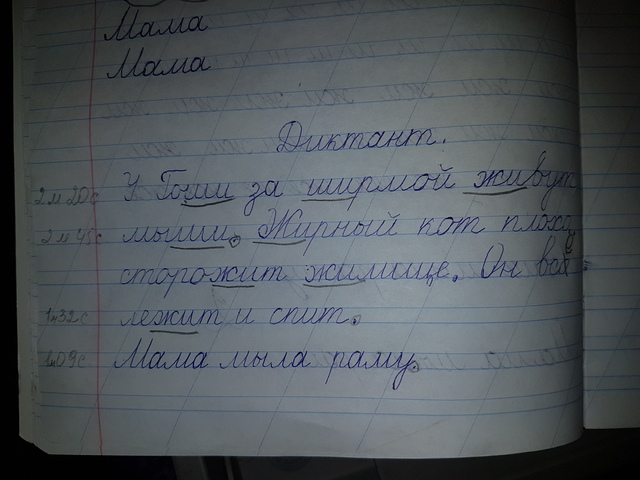 Мама
Мама
Диктант.
2м 20с У Гоши за ширмой живут
2м 45с мыши. Жирный кот плохо
сторожит жилище. Он всё
1м32с лежит и спит.
1м09с Мама мыла раму.